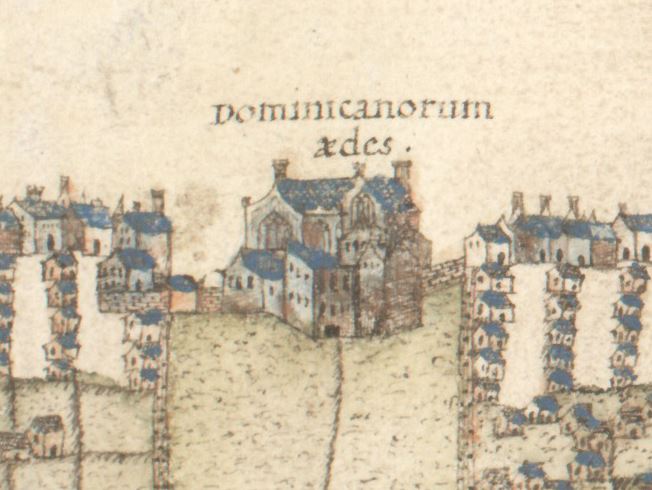 Dominicanorum
ædes .